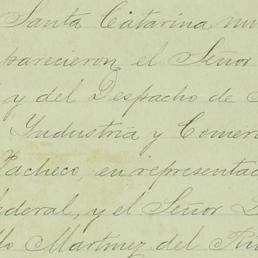 Santa Catarina nu
parecieron el Señor
y del Despacho de
Industria y Comer
Pacheco, en representac
ederal, y el Señor
Martinez del Rio